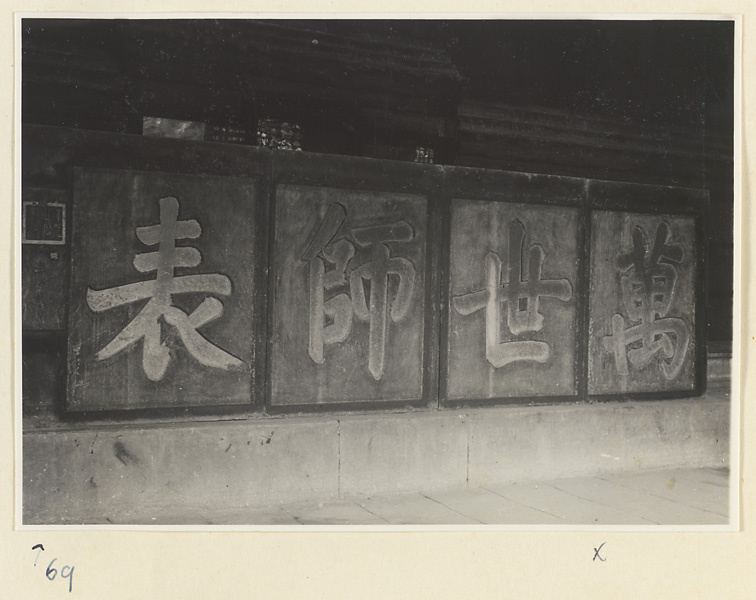 萬世師表
69
x